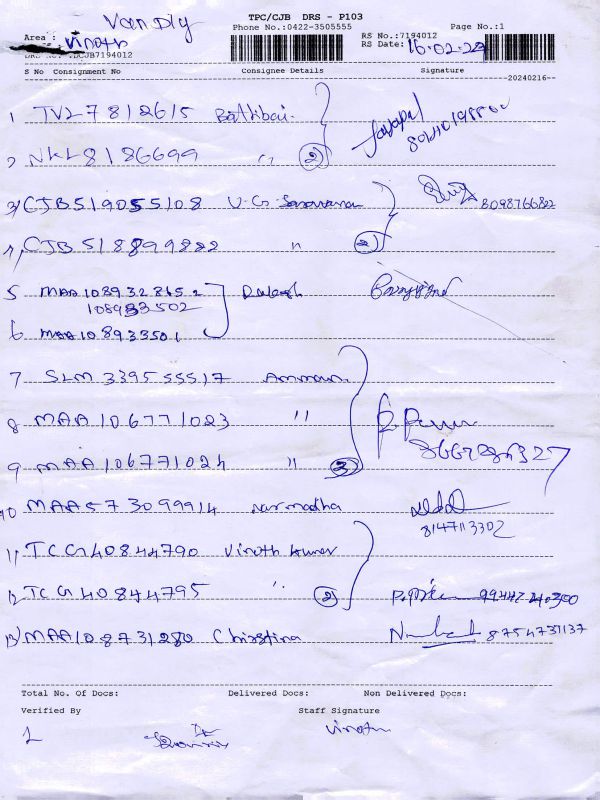 Van Dly
TPC/CJB DRS - P103
Phone No.:0422-3505555 Page No.:1
Area : Vinoth RS No.:7194012
RS Date: 16.02.24
DRS No. :DCJB7194012
S No Consignment No Consignee Details Signature
20240216
1 TVL 7812615 Bathibai
2 NKL 8186699 " 2
3 CJB 519055108 V.G. Saravana 8098766822
4 CJB 518899822 " 2
5 MAA 108932865 2 Rakesh
108933502
6 MAA 108933501
7 SLM 339555517 Amman
8 MAA 106771023 "
9 MAA 106771024 " 3
10 MAA 573099914 Narmadha
8147113302
11 TCG 40844790 Vinoth kumar
12 TCG 40844795 " 2
13 MAA 108731280 Christina 8754731137
Total No. Of Docs: Delivered Docs: Non Delivered Docs:
Verified By Staff Signature
Vinoth